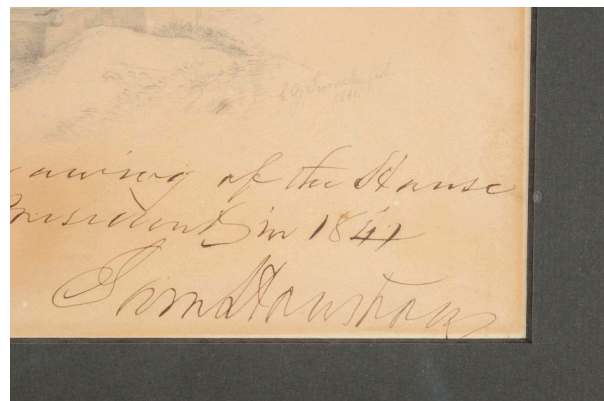 awing of the House
President in 1841
Sam Houston